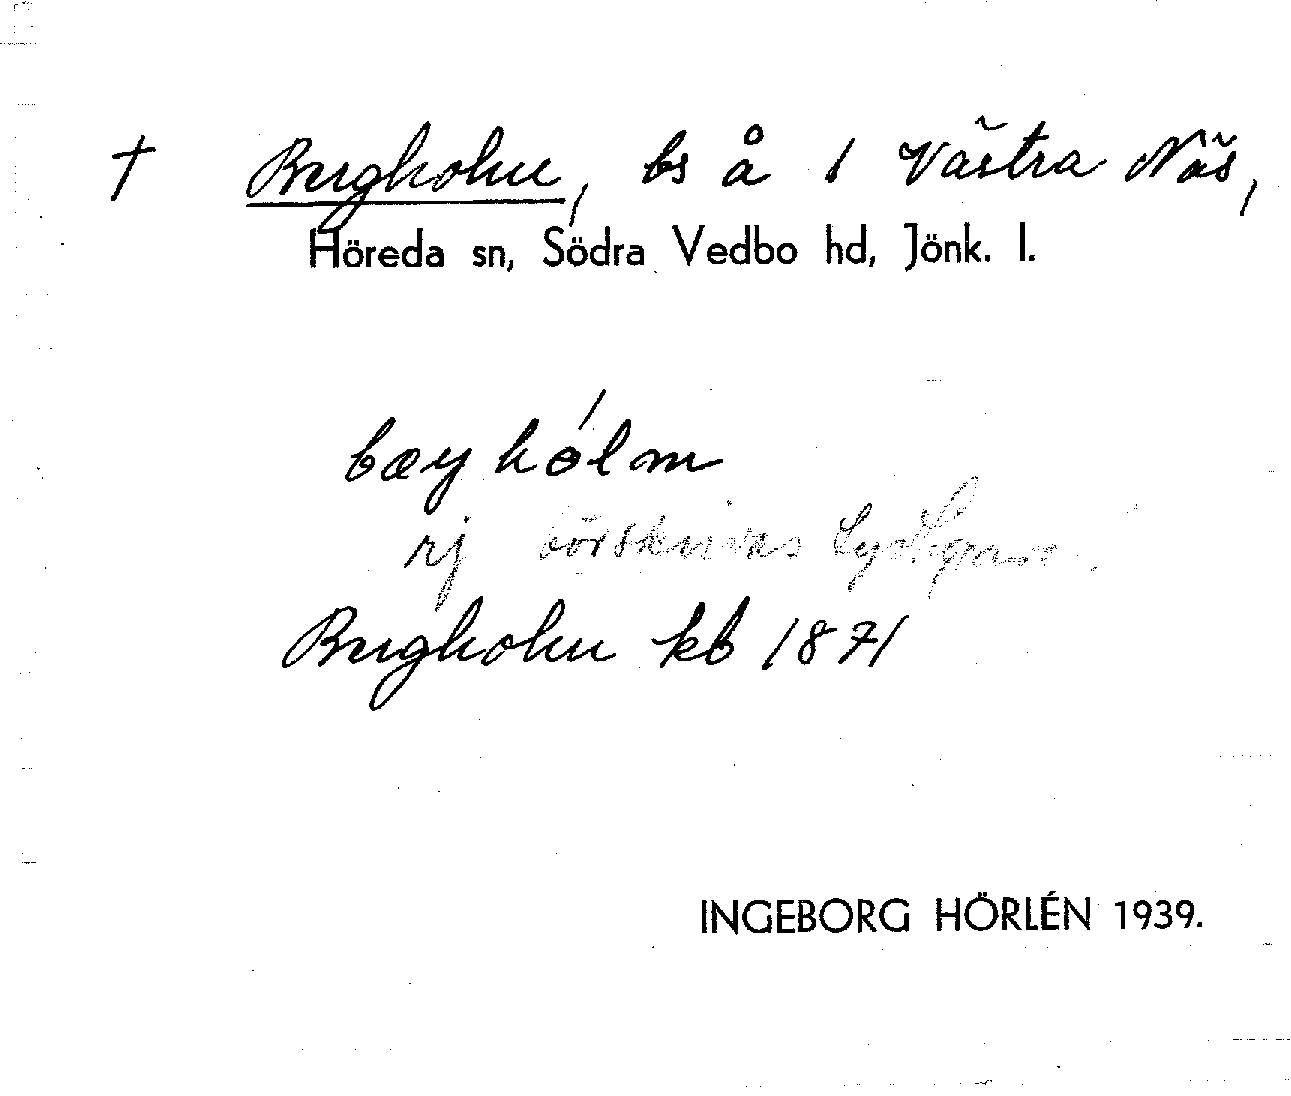 † Bergholm, bs å 1 Västra Näs,
Höreda sn, Södra Vedbo hd, Jönk. l.
bæyhólm
rj
Bergholm kb 1871
INGEBORG HÖRLÉN 1939.